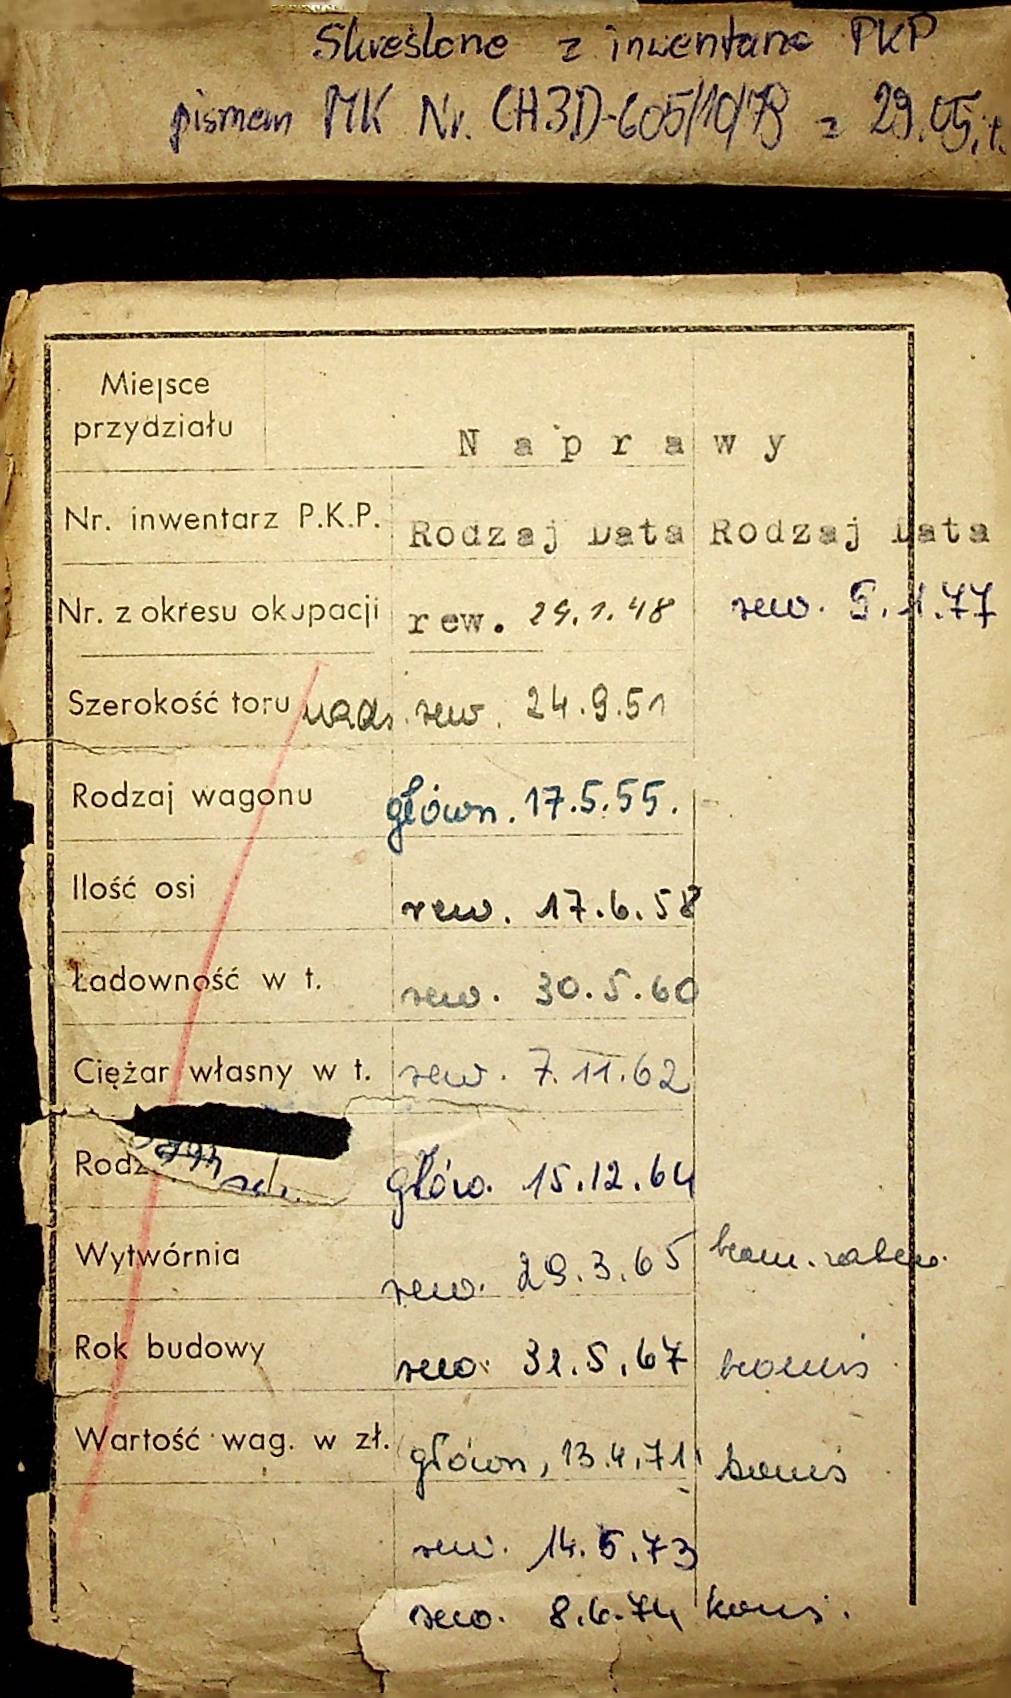 Skreślone z inwentarza PKP
pismem MK Nr. CH3D-605/10/78 z 29.05.
Miejsce
przydziału
N a p r a w y
Nr. inwentarz P.K.P.
Rodzaj Data Rodzaj Data
Nr. z okresu okupacji rew. 24.1.48 rew. 5.1.77
Szerokość toru rew. 24.9.51
Rodzaj wagonu główn. 17.5.55.
Ilość osi rew. 17.6.58
Ładowność w t. rew. 30.5.60
Ciężar własny w t. rew. 7.11.62
główn. 15.12.64
Wytwórnia rew. 29.3.65
Rok budowy rew. 31.5.67
Wartość wag. w zł. główn, 13.4.71
rew. 14.5.73
rew. 8.6.74